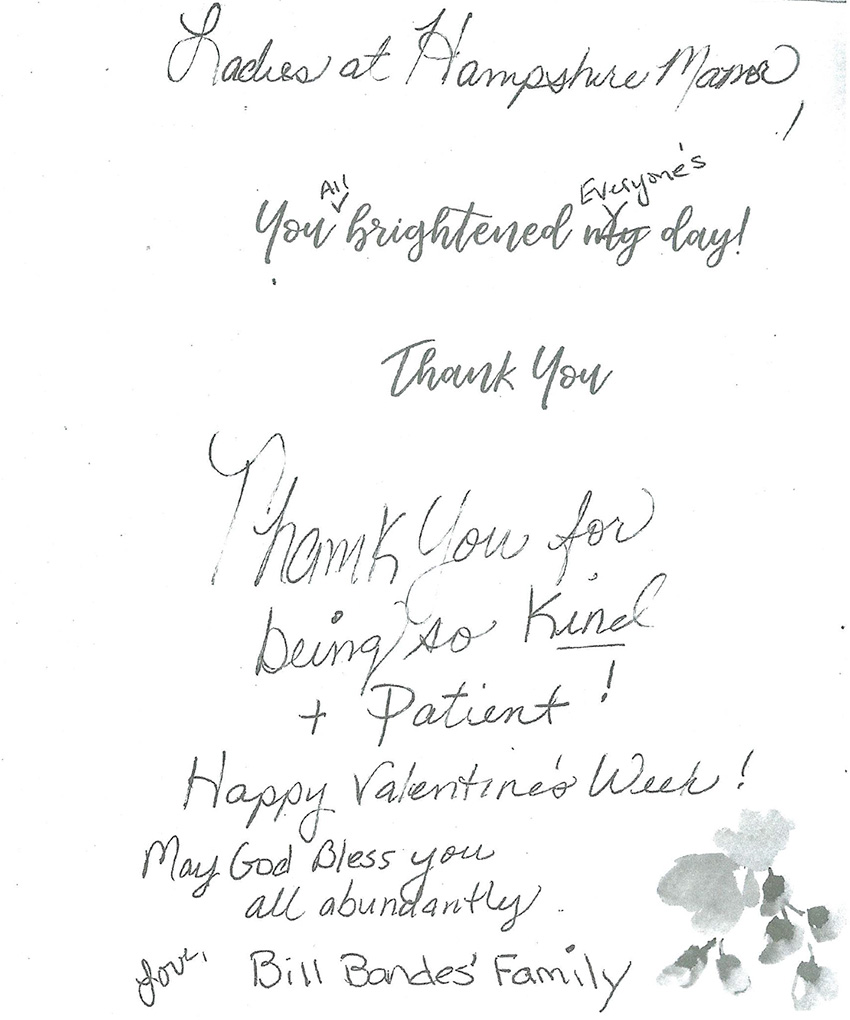 Ladies at Hampshire Manor!
All Everyone's
You brightened my day!
Thank You
Thank You for
being so Kind
+ Patient!
Happy Valentine's Week!
May God Bless you
all abundantly.
Love, Bill Bandes' Family